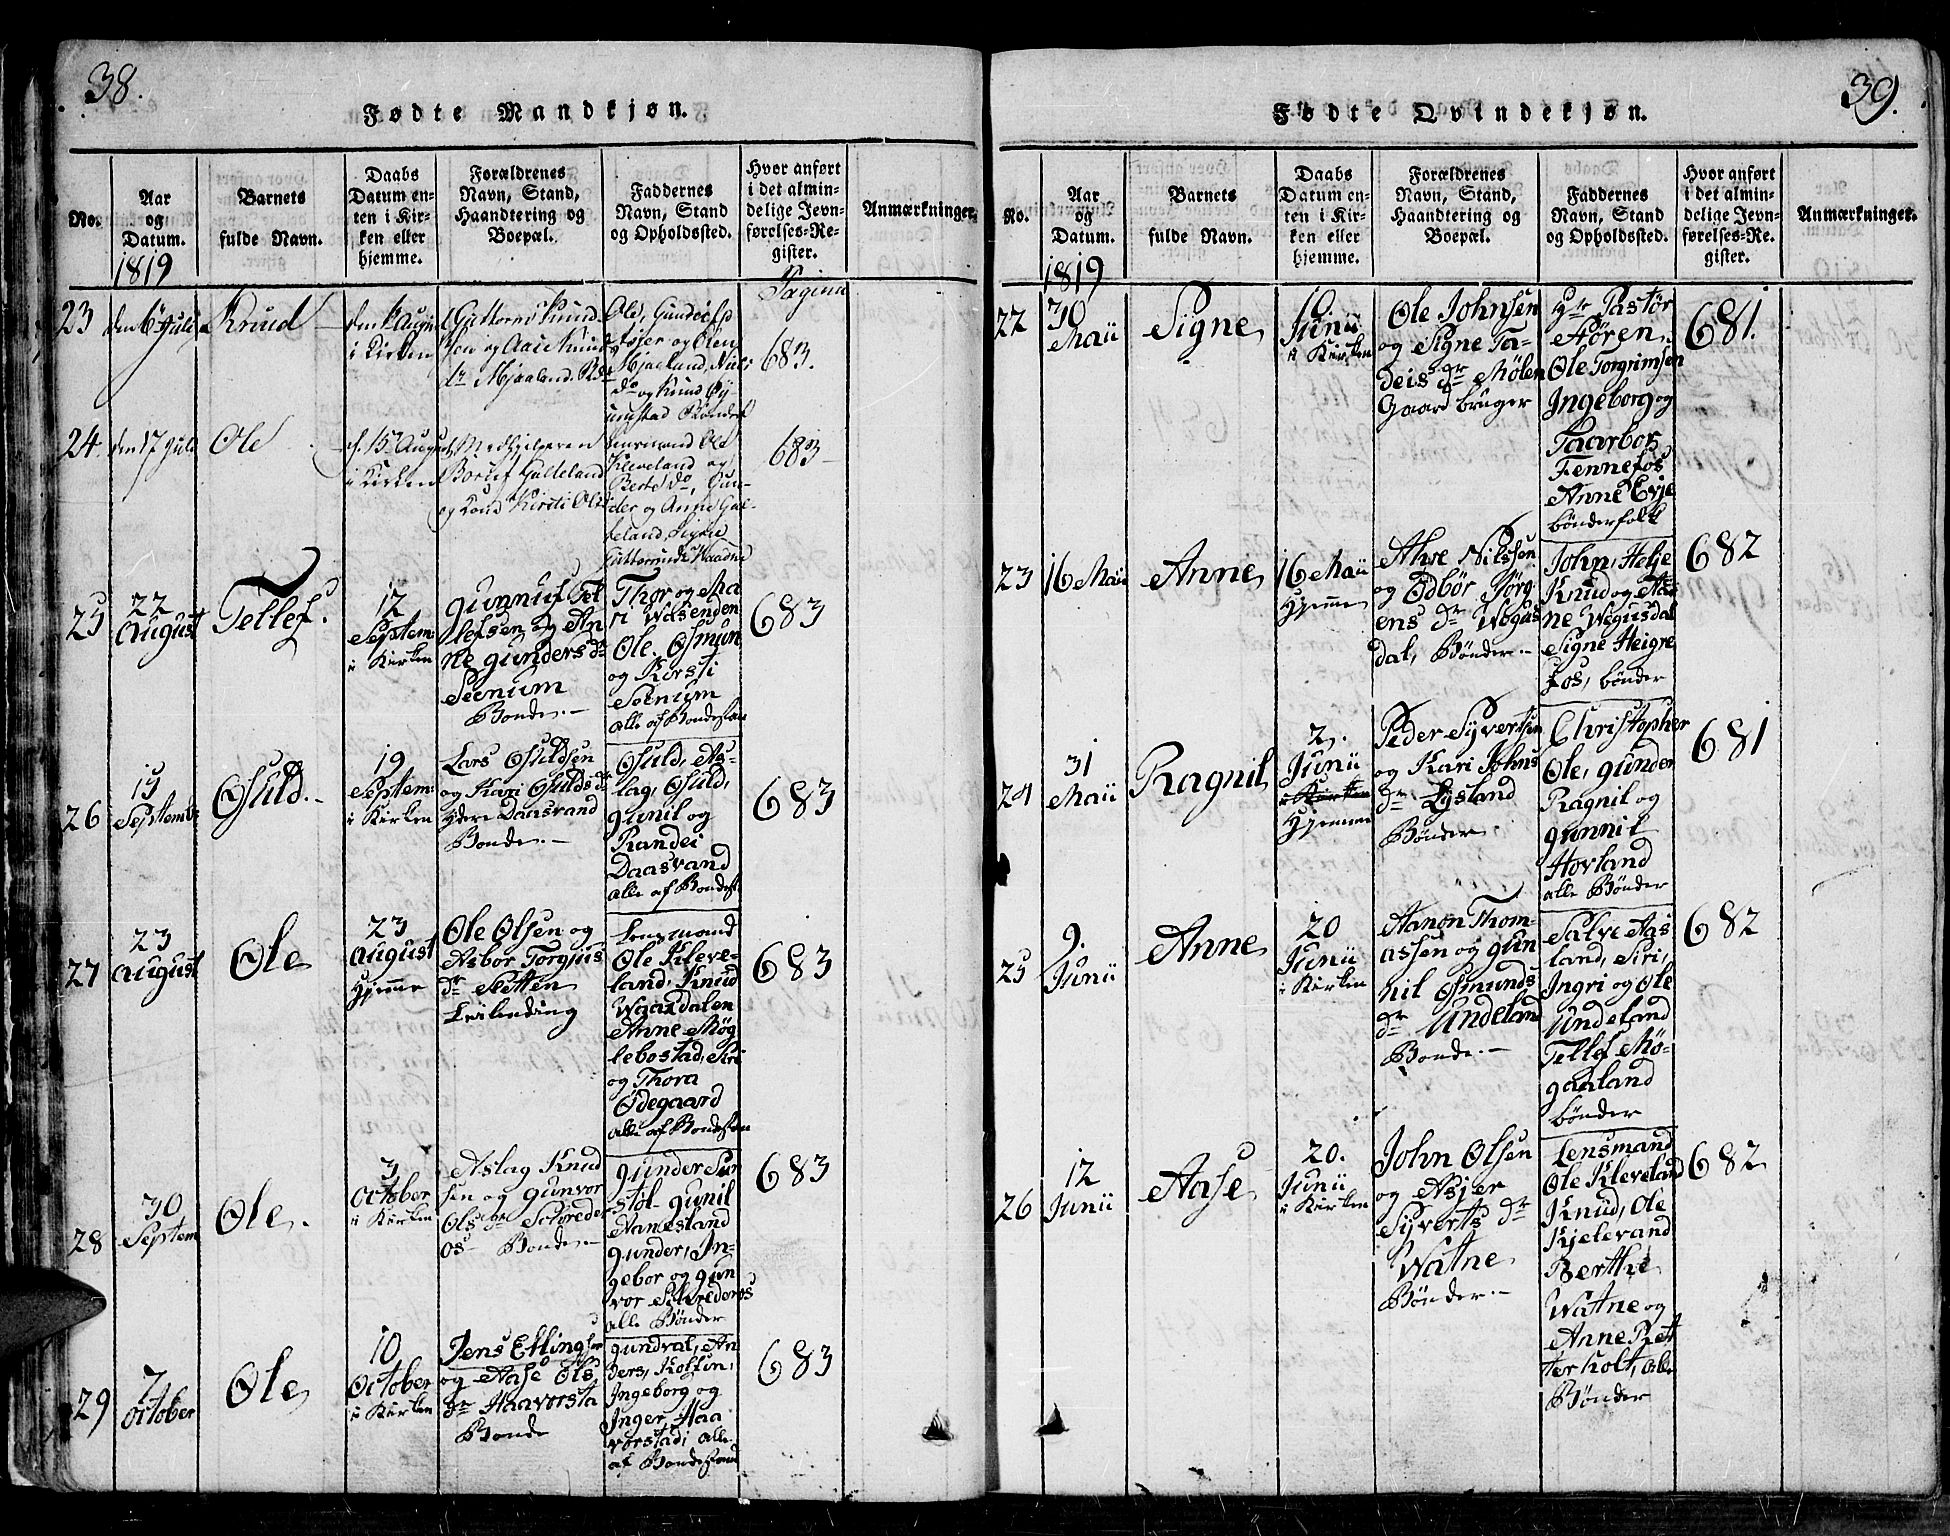 38.
Fødte Mandkjøn.
No.
Aar
og
Datum.
1819
Barnets
fulde Navn.
Daabs
Datum en-
ten i Kir-
ken eller
hjemme.
Forældrenes
Navn, Stand,
Haandtering og
Boepæl.
Faddernes
Navn, Stand
og Opholdssted.
Hvor anført
i det almin-
delige Jevn-
førelses-Re-
gister.
Anmærkninger.
23
den 6 Julii
Knud
i Kirken
Guttorm Knud
sen og Aase Knuds
Mjaaland
Ole, Gundvs
og Olen
Mjaaland, Niels
do og Knud
Pagina
683.
24
den 17 Julii
Ole
d. 15 August
i Kirken
Medhjelperen
Gulleland
og Kone Kirsti Ols
Lensmand Ole
Kleveland og
Berte do, Gun-
der og Anne Gul-
leland, Signe
Guttormsdr Waadne
683
25
22
August
Tellef.
12
Septem
i Kirken
Gunnuf Tel
lefsen og An
ne Gunders dr
Senum
Bonde.
Thor og Ma
ri Wasenden
Ole, Osmun
og Korsti
Senum
alle af Bondestan
683
26
15
Septembr
Osuld.
19
Septem
i Kirken
Lars Osuldsen
og Kari Osulds dr
Daasvand
Bonde.
Osuld, As-
lag, Osuld,
Gunil og
Randei
Daasvand
alle af Bondest
683
27
23
August
Ole
23
August
Hjemme
Ole Olsen og
Asbor Torgius
dr Sletten
Leilending
Lensmand
Ole Kleve-
land, Knud
Waandalen
Anne Møg
lebostad, Siri
og Thora
Ødegaard
alle af Bondestan
683
28
30
Septem
Ole.
3
October
i Kirken
Aslag Knud
sen og Gunvor
Ols dr Sclvrede
os Bonde.
Gunder Sun
støl - Gunil
Aanesland
Gunder, In-
gebor og Gun
vor Selvrederos
alle Bønder
683
29
7
October
Ole
10
October
i Kirken
Jens Ellingsen
og Aase Ols
dr Haavorsta
Bonde
Gundval, An
ders, Kolfin,
Ingeborg og
Inger Haa
vorstad, alle
af Bondestand
683
39.
Fødte Qvindekjøn.
No.
Aar
og
Datum.
1819
Barnets
fulde Navn.
Daabs
Datum en-
ten i Kir-
ken eller
hjemme.
Forældrenes
Navn, Stand,
Haandtering og
Boepæl.
Faddernes
Navn, Stand
og Opholdssted.
Hvor anført
i det almin-
delige Jevn-
førelses-Re-
gister.
Anmærkninger.
22
30
Maii
Signe
10
Junii
i Kirken
Ole Johnsen
og Signe Ta-
deis dr Mølen
Gaardbruger
Hr Pastor
Føren,
Ole Torgrimsen
Ingeborg og
Taarbor
Fennefos
Anne Evje
bønderfolk
681.
23
16 Maii
Anne
16 Maii
Hjemme
Alve Nilssen
og Odbør Jørg
ens dr Wogus
dal, Bønder.
John, Helje
Knud og Aa-
ne Wegusdal
Signe Heigre
fos, bønder
682
24
31
Maii
Ragnil
2.
Junii
i Kirken
Hjemme
Peder Syvertsen
og Kari Johns
dr Lysland
Bønder.
Christopher
Ole, Gunder
Ragnil og
Gunnil
Hovland
alle Bønder
681
25
9.
Junii
Anne
20
Junii
i Kirken
Aanon Thom-
assen og Gun
hil Osmunds
dr Undeland
Bonde.
Salve Aas
land, Siri,
Ingri og Ole
Undeland
Tellef Mø-
gaaland
bønder
682
26
12
Junii
Aase
20.
Junii
i Kirken
John Olsen
og Asjer
Syverts dr
Watne
Bønder.
Lensmand
Ole Kleveland
Knud, Ole
Kjelevand
Berthe
Watne og
Anne Ret
terholt, alle
Bønder
682